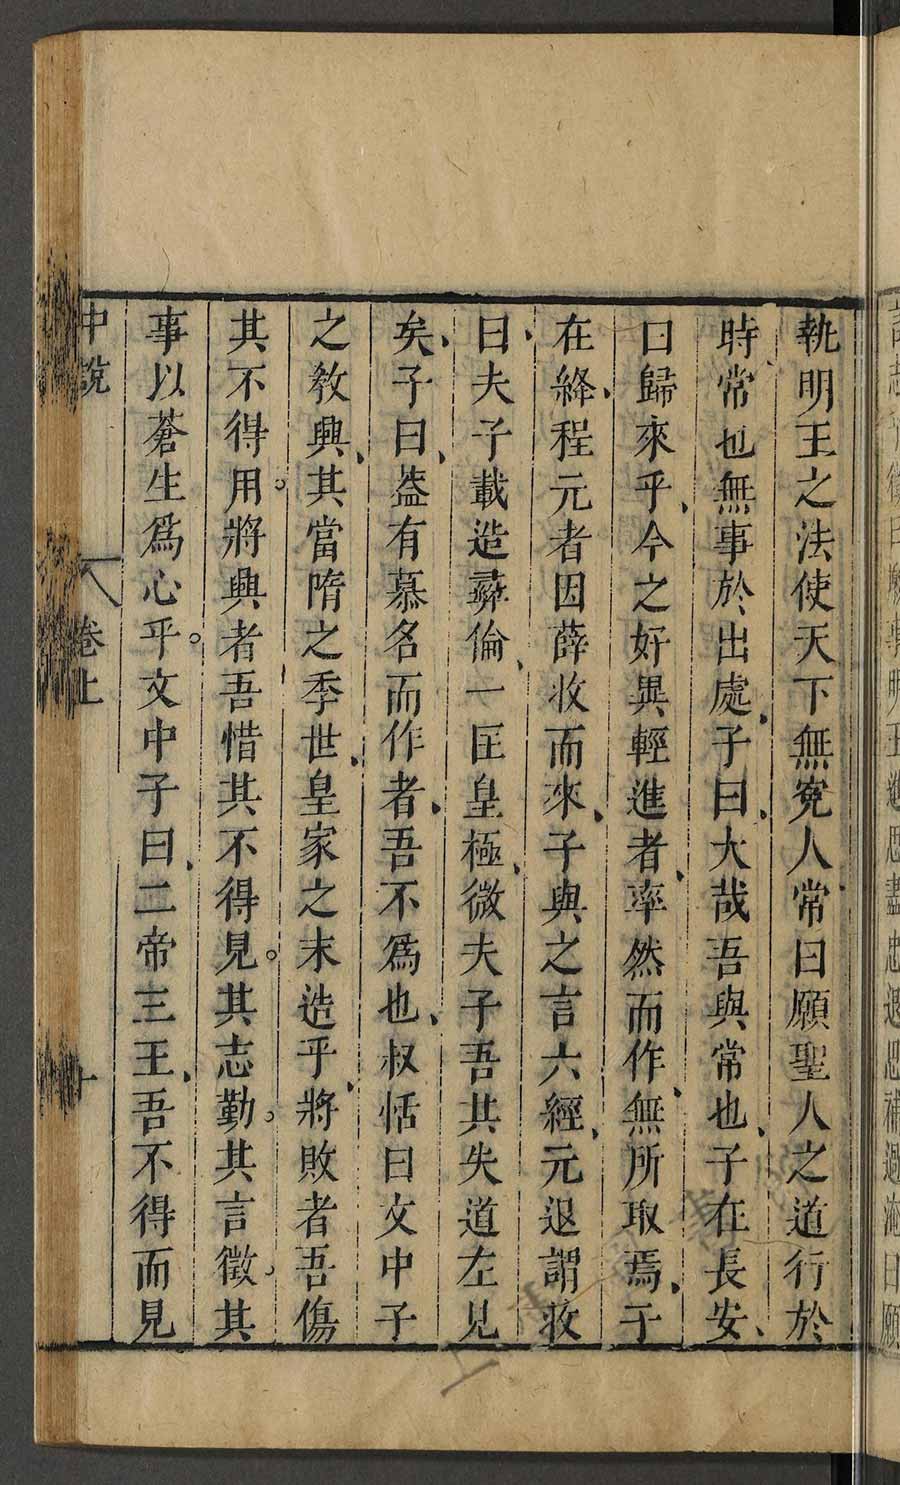 執明王之法使天下無寃人常曰願聖人之道行於
時常也無事於出處子曰大哉吾與常也子在長安
曰歸來乎今之好異輕進者率然而作無所取焉子
在絳程元者因薛收而來子與之言六經元退謂收
曰夫子載造彞倫一匡皇極微夫子吾其失道左見
矣子曰葢有慕名而作者吾不爲也叔恬曰文中子
之敎興其當隋之季世皇家之末造乎將敗者吾傷
其不得用將興者吾惜其不得見其志勤其言徵其
事以蒼生爲心乎文中子曰二帝三王吾不得而見
中說 卷上 十